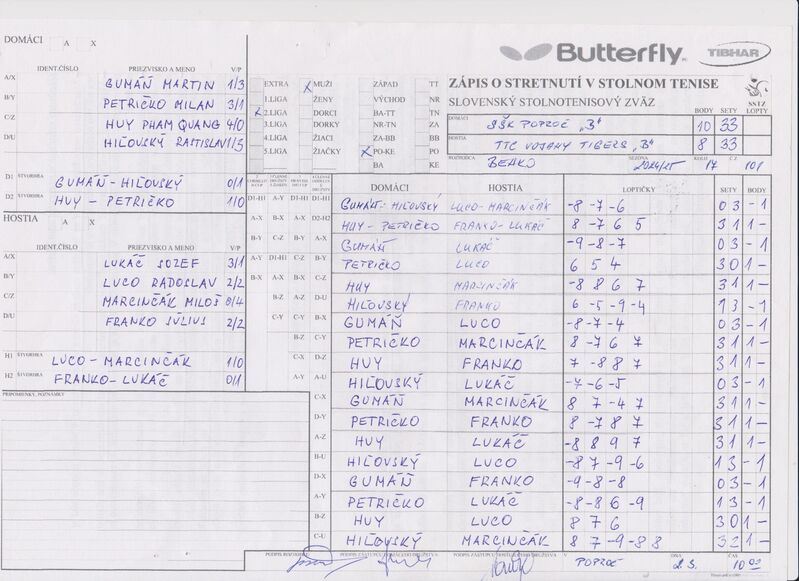 DOMÁCI A X
IDENT.ČÍSLO PRIEZVISKO A MENO V/P
A/X GUMÁŇ MARTIN 1/3
B/Y PETRIČKO MILAN 3/1
C/Z HUY PHAM QUANG 4/0
D/U HIĽOVSKÝ RASTISLAV 1/3
D1 ŠTVORHRA GUMÁŇ - HIĽOVSKÝ 0/1
D2 ŠTVORHRA HUY - PETRIČKO 1/0
HOSTIA A X
IDENT.ČÍSLO PRIEZVISKO A MENO V/P
A/X LUKÁČ JOZEF 3/1
B/Y LUCO RADOSLAV 2/2
C/Z MARCINČÁK MILOŠ 0/4
D/U FRANKO JÚLIUS 2/2
H1 ŠTVORHRA LUCO - MARCINČÁK 1/0
H2 ŠTVORHRA FRANKO - LUKÁČ 0/1
PRIPOMIENKY, POZNÁMKY
EXTRA X MUŽI ZÁPAD TT
1.LIGA ŽENY VÝCHOD NR
X 2.LIGA DORCI BA-TT TN
3.LIGA DORKY NR-TN ZA
4.LIGA ŽIACI ZA-BB BB
5.LIGA ŽIAČKY X PO-KE PO
BA KE
Butterfly TIBHAR
ZÁPIS O STRETNUTÍ V STOLNOM TENISE
SLOVENSKÝ STOLNOTENISOVÝ ZVÄZ
SSTZ
BODY SETY LOPTY
DOMÁCI ŠŠK POPROČ "B" 10 33
HOSTIA TTC VOJANY TIGERS "B" 8 33
ROZHODCA BEŇKO SEZÓNA 2024/25 KOLO 17 Č.Z. 101
DOMÁCI HOSTIA LOPTIČKY SETY BODY
D1-H1 A-Y D1-H1 D1-H1 GUMÁŇ - HIĽOVSKÝ LUCO-MARCINČÁK -8 -7 -6 0 3 - 1
A-X B-X A-X D2-H2 HUY - PETRIČKO FRANKO-LUKÁČ 8 -7 6 5 3 1 1 -
B-Y C-Z B-Y A-X GUMÁŇ LUKÁČ -9 -8 -7 0 3 - 1
A-Y D1-H1 C-Z B-Y PETRIČKO LUCO 6 5 4 3 0 1 -
B-X A-X B-X C-Z HUY MARCINČÁK -8 8 6 7 3 1 1 -
B-Z A-Z D-U HIĽOVSKÝ FRANKO 6 -5 -9 -4 1 3 - 1
C-Y C-Y B-X GUMÁŇ LUCO -8 -7 -4 0 3 - 1
B-Z C-Y PETRIČKO MARCINČÁK 8 -7 6 7 3 1 1 -
C-X D-Z HUY FRANKO 7 -8 8 7 3 1 1 -
A-Y A-U HIĽOVSKÝ LUKÁČ -7 -6 -5 0 3 - 1
C-X GUMÁŇ MARCINČÁK 8 7 -4 7 3 1 1 -
D-Y PETRIČKO FRANKO 8 -7 8 7 3 1 1 -
A-Z HUY LUKÁČ -8 8 9 7 3 1 1 -
B-U HIĽOVSKÝ LUCO -8 7 -9 -6 1 3 - 1
D-X GUMÁŇ FRANKO -9 -8 -8 0 3 - 1
A-Y PETRIČKO LUKÁČ -8 -8 6 -9 1 3 - 1
B-Z HUY LUCO 8 7 6 3 0 1 -
C-U HIĽOVSKÝ MARCINČÁK 8 7 -9 -8 8 3 2 1 -
PODPIS ROZHODCU PODPIS ZÁSTUPCU DOMÁCEHO DRUŽSTVA PODPIS ZÁSTUPCU HOSŤUJÚCEHO DRUŽSTVA V POPROČ DŇA 2.3. ČAS 10 00